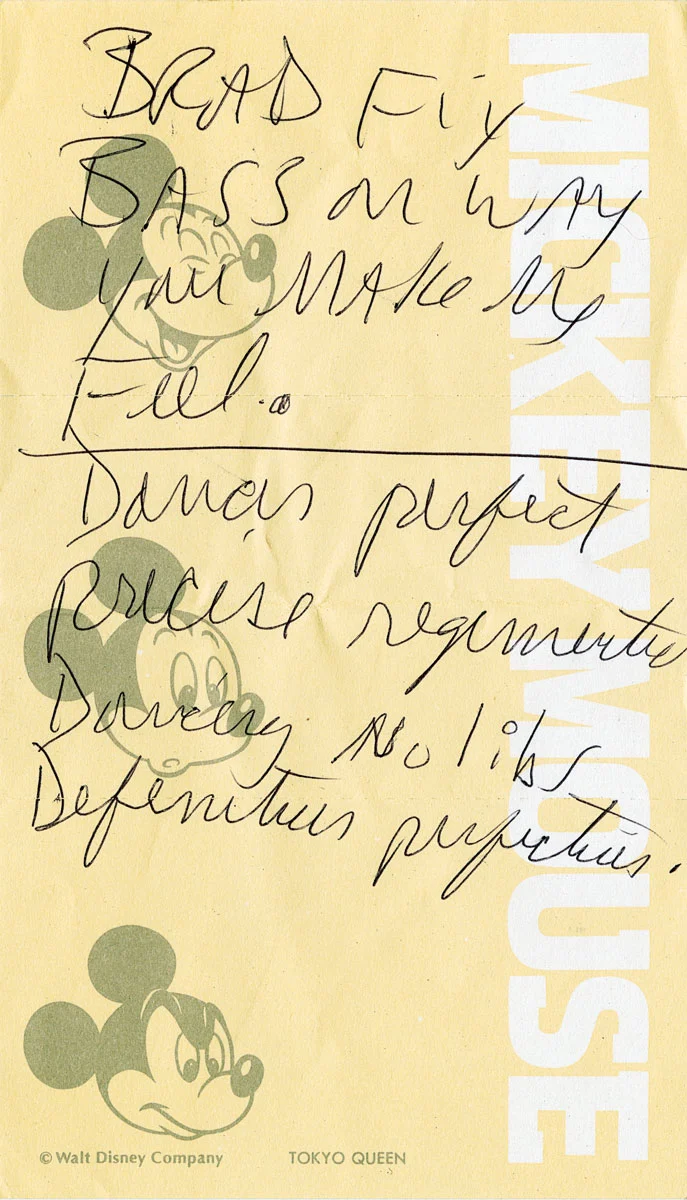 BRAD Fix
BASS on WAY
you MAKe Me
Feel.
Dancers perfect
precise regimented
Dancing No libs
Defenitive perfection.
MICKEY MOUSE
© Walt Disney Company
TOKYO QUEEN